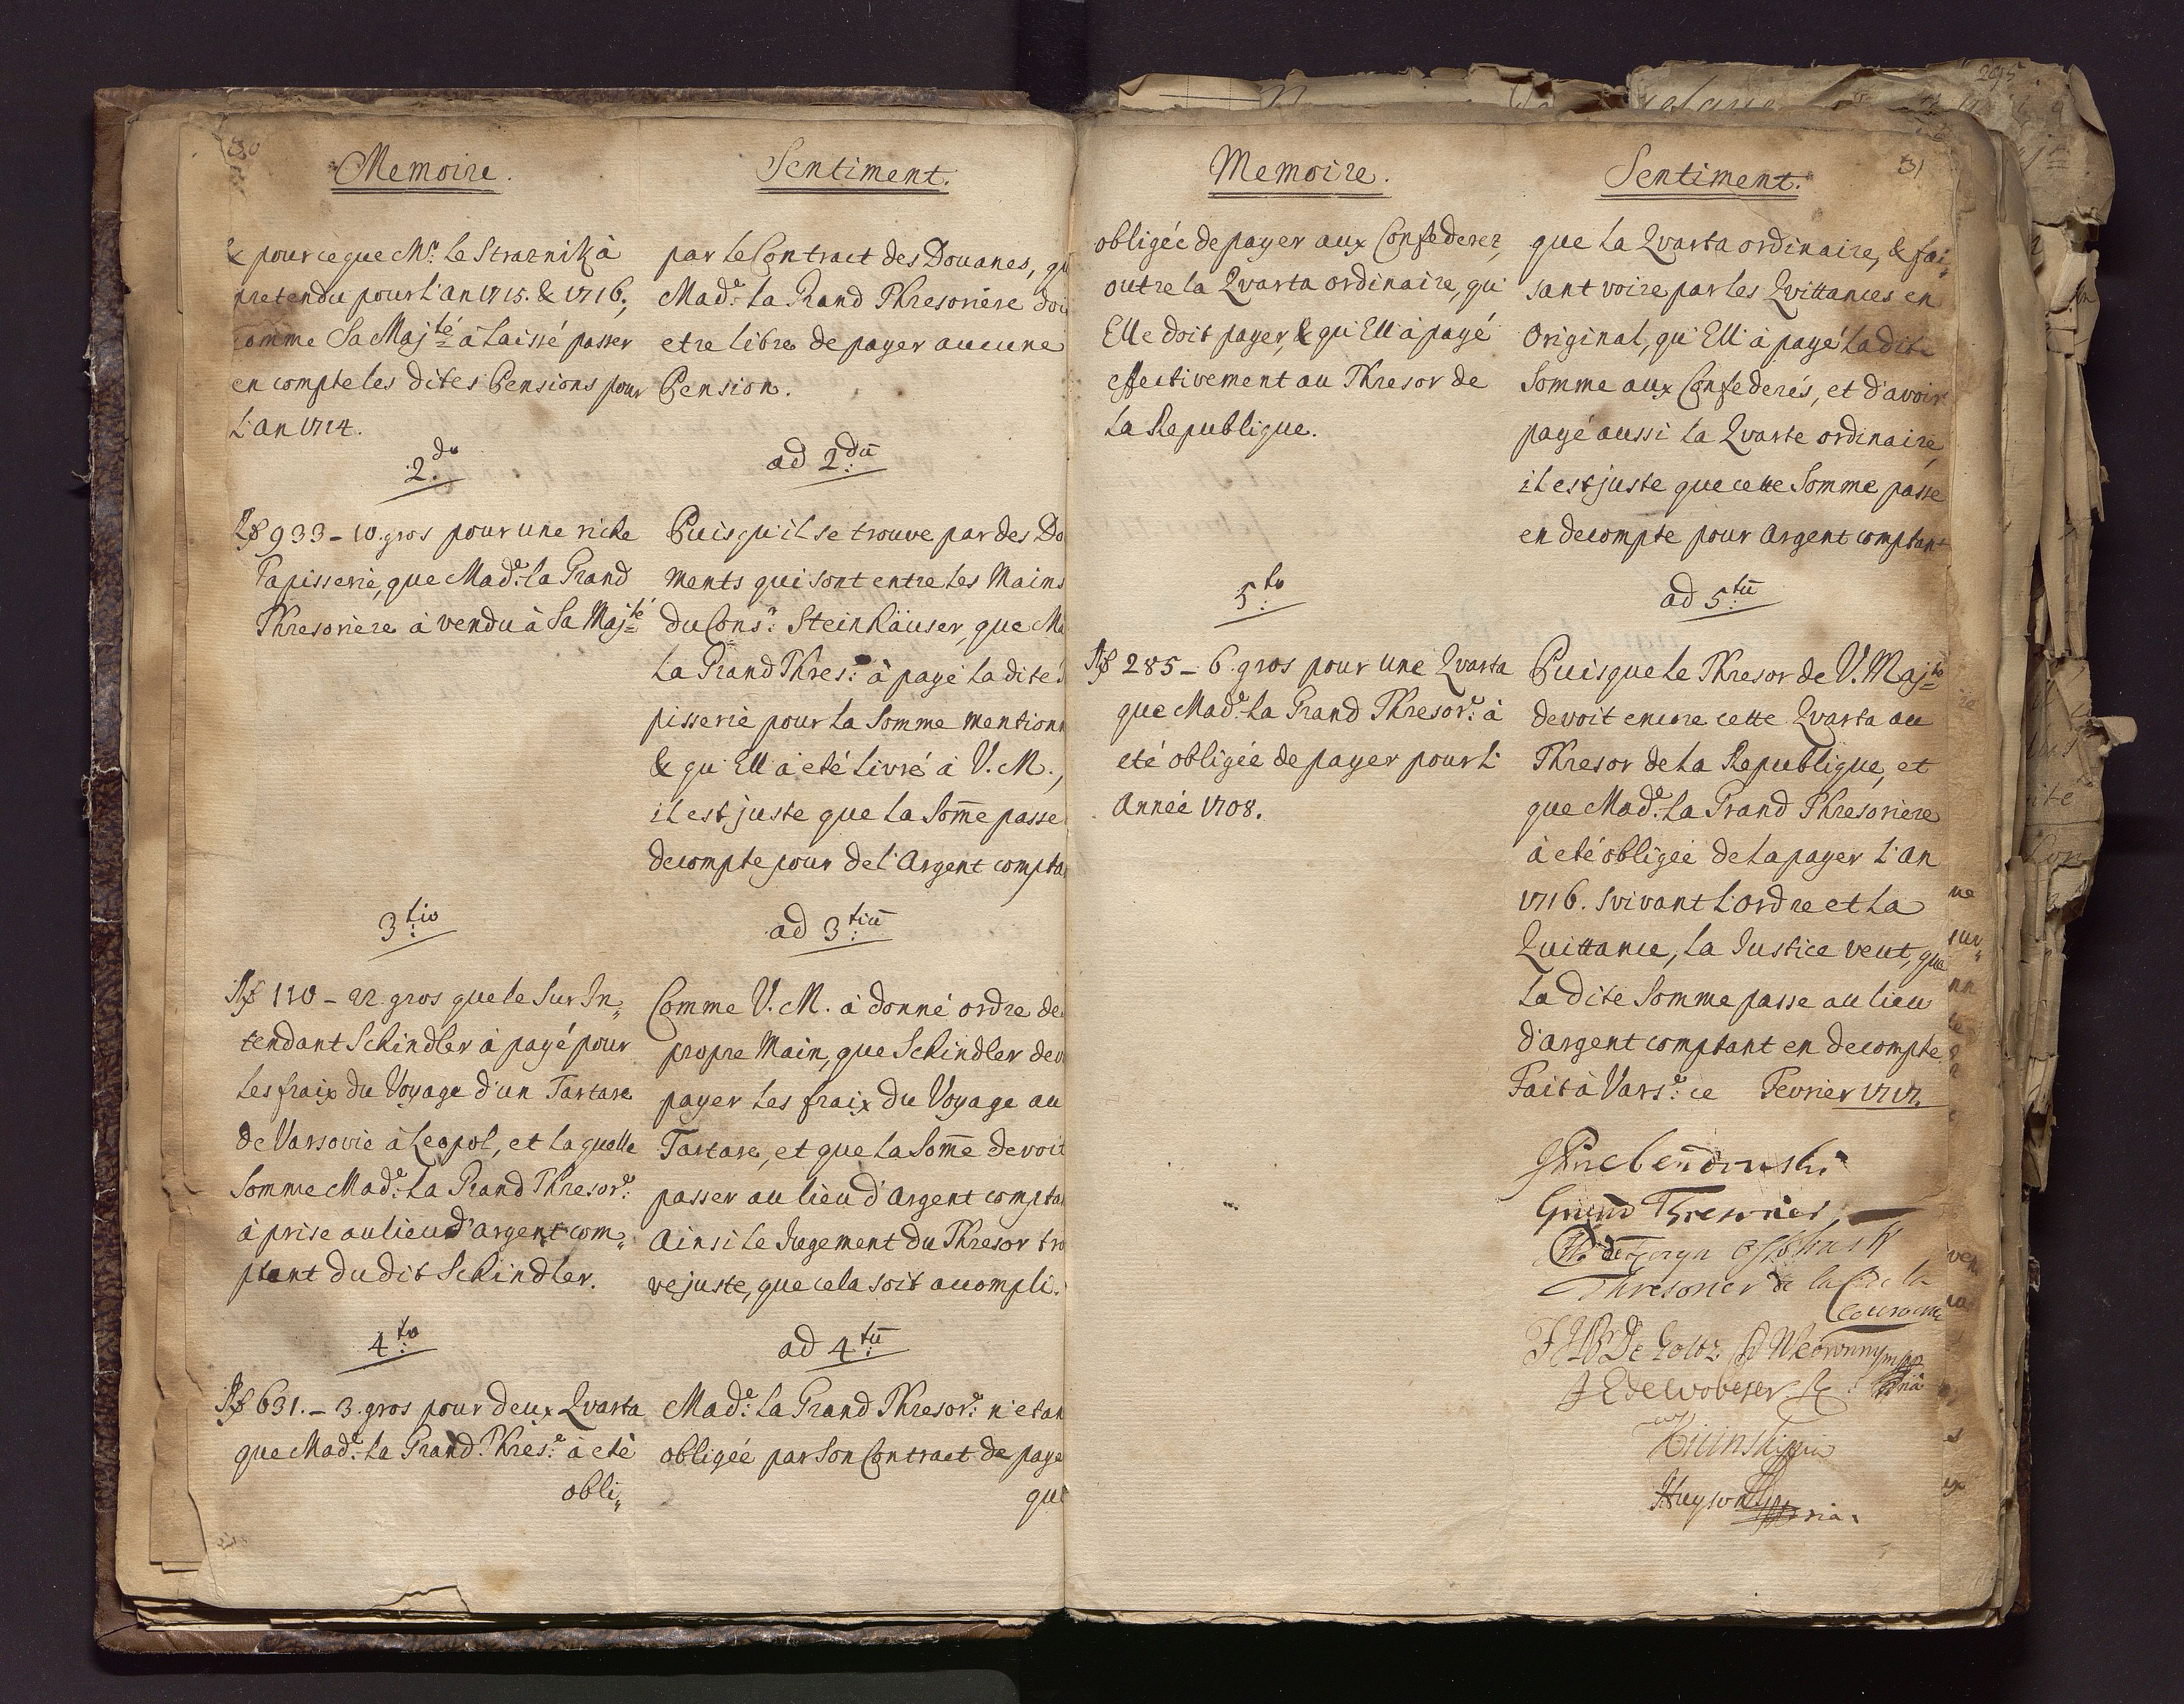 30
Memoire.
& pour ce que Mr. Le Straznik à
pretendu pour l'an 1715. & 1716,
comme Sa Majté à Laissé passer
en compte les dites Pensions pour
L'an 1714.
2do
933 - 10. gros pour une riche
Tapisserie, que Made. la Grand
Thresoriere à vendu à Sa Majté
3tio
110 - 22. gros que le Sur In„
tendant Schindler à payé pour
Les fraix du Voyage d'un Tartare
de Varsovie à Leopol, et laquelle
Somme Made. La Grand Thresore.
à prise au lieu d'argent com„
ptant du dit Schindler.
4to
631. - 3. gros pour deux Qvarta
que Made. la Grand. Threse. à eté
obli„
Sentiment.
par le Contract des Douanes, qu
Made. La Grand Thresoriere doi
etre libre de payer aucune
Pension.
ad 2dū
Puisqu'il se trouve par des Do
ments qui sont entre les Mains
du Consr. Steinhäuser, que Ma
La Grand Thres: à payé La dite
pisserie pour La Somme mentionn
& qu'Ell'à eté Livré à V. M.,
il est juste que La Som̄e passe
decompte pour de l'Argent compta
ad 3tiū
Comme V. M. à donné ordre de
propre Main, que Schindler dev
payer Les fraix du Voyage au
Tartare, et que La Som̄e devoit
passer au lieu d'Argent compta
Ainsi le Jugement du Thresor tro
ve juste, que cela soit accompli.
ad 4tū
Made. La Grand Thresor: n'etan
obligée par Son Contract de paye
que
31
Memoire.
obligée de payer aux Confederez,
outre la Qvarta ordinaire, qu'
Elle doit payer, & qu'Ell'à payé
effectivement au Thresor de
La Republique.
5to
285 - 6. gros pour une Qvarta
que Made. La Grand Thresore. à
eté obligée de payer pour L'
Année 1708.
Sentiment.
que La Qvarta ordinaire, & fai„
sant voire par les Qvittances en
Original, qu'Ell'à payé La dite
Somme aux Confederés, et d'avoir
payé aussi La Qvarte ordinaire,
il est juste que cette Somme passe
en decompte pour Argent comptant
ad 5tū
Puisque le Thresor de V. Majté
devoit encore cette Qvarta au
Thresor de La Republique, et
que Made. La Grand Thresoriere
à eté obligée de La payer L'An
1716. suivant L'Ordre et La
Quittance, La Justice veut, que
La dite Somme passe au lieu
d'argent comptant en decompte.
Fait à Varse. ce Fevrier 1717.
Grand Thresorier,
Thresorier de la
Couronne